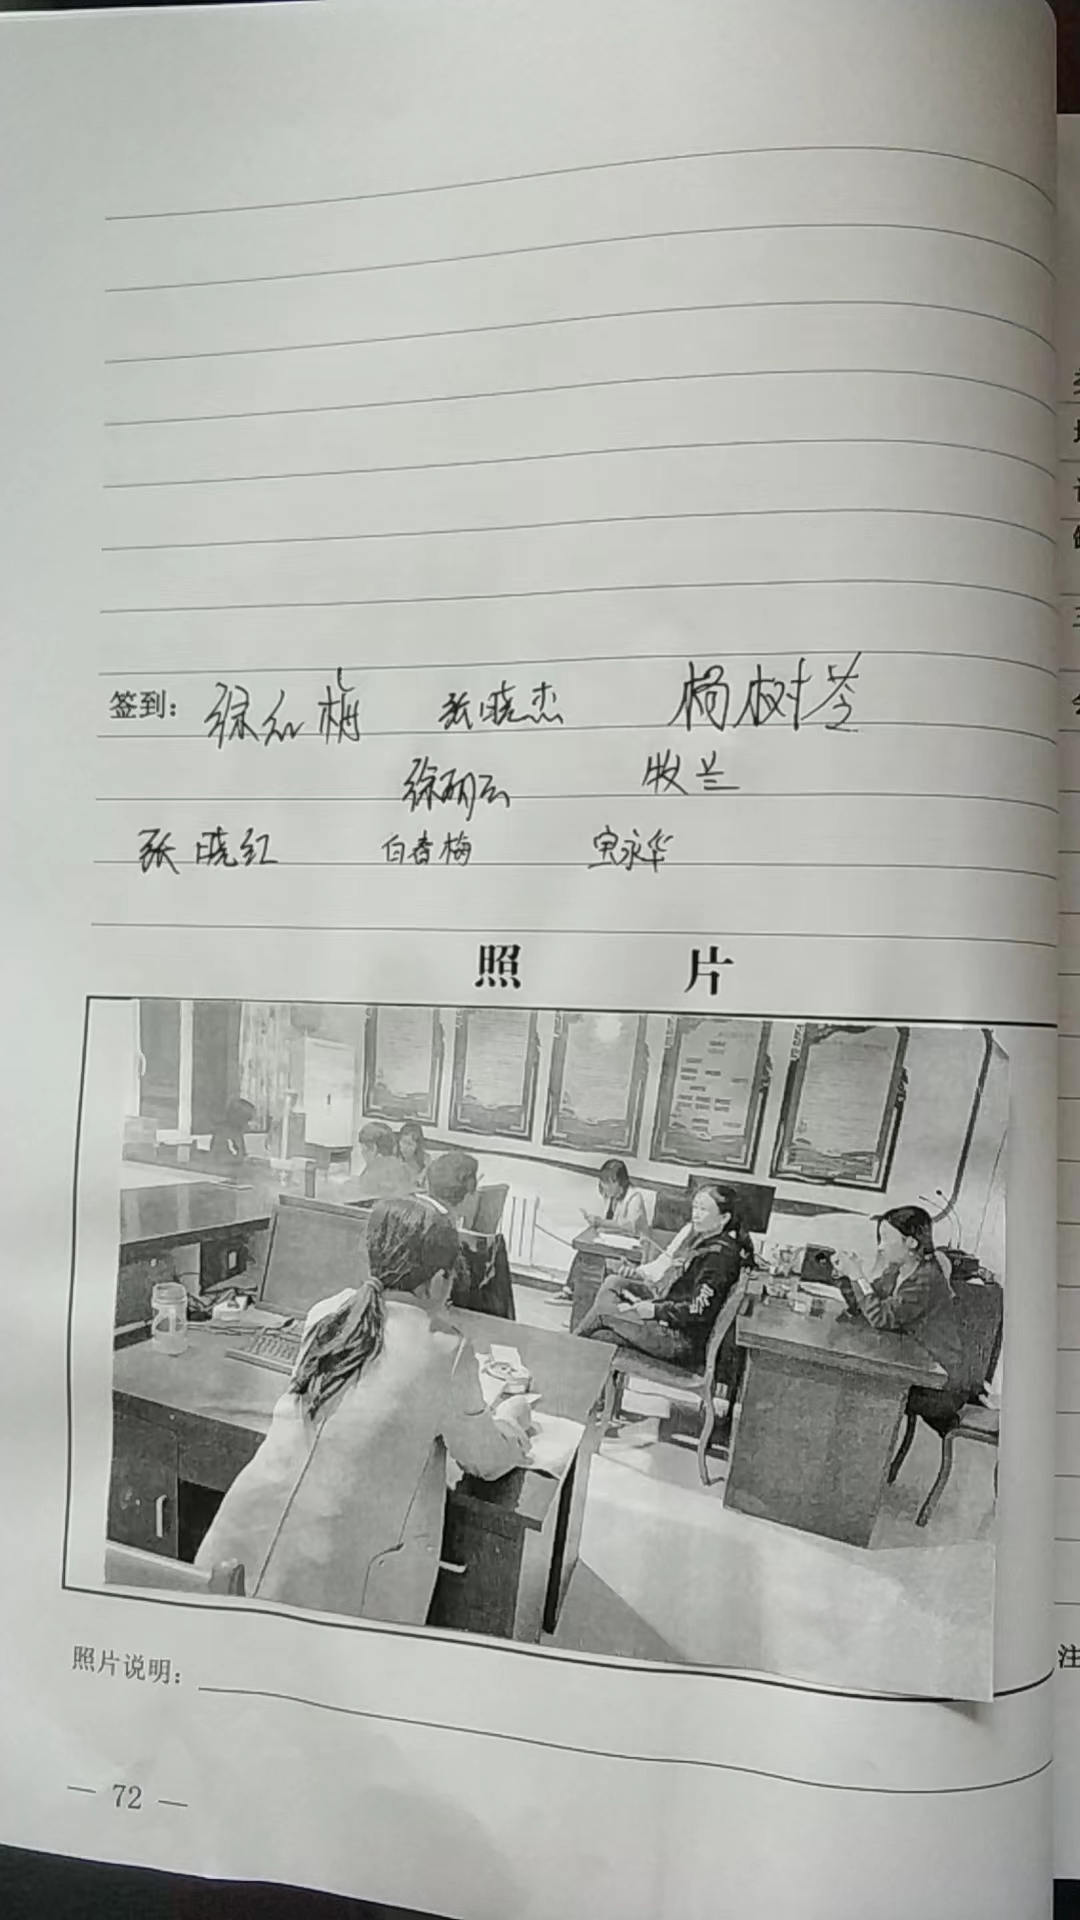 签到: 徐红梅 张晓杰 杨树苓
徐丽云 牧兰
张晓红 白香梅 宝永华
照 片
照片说明:
— 72 —
注